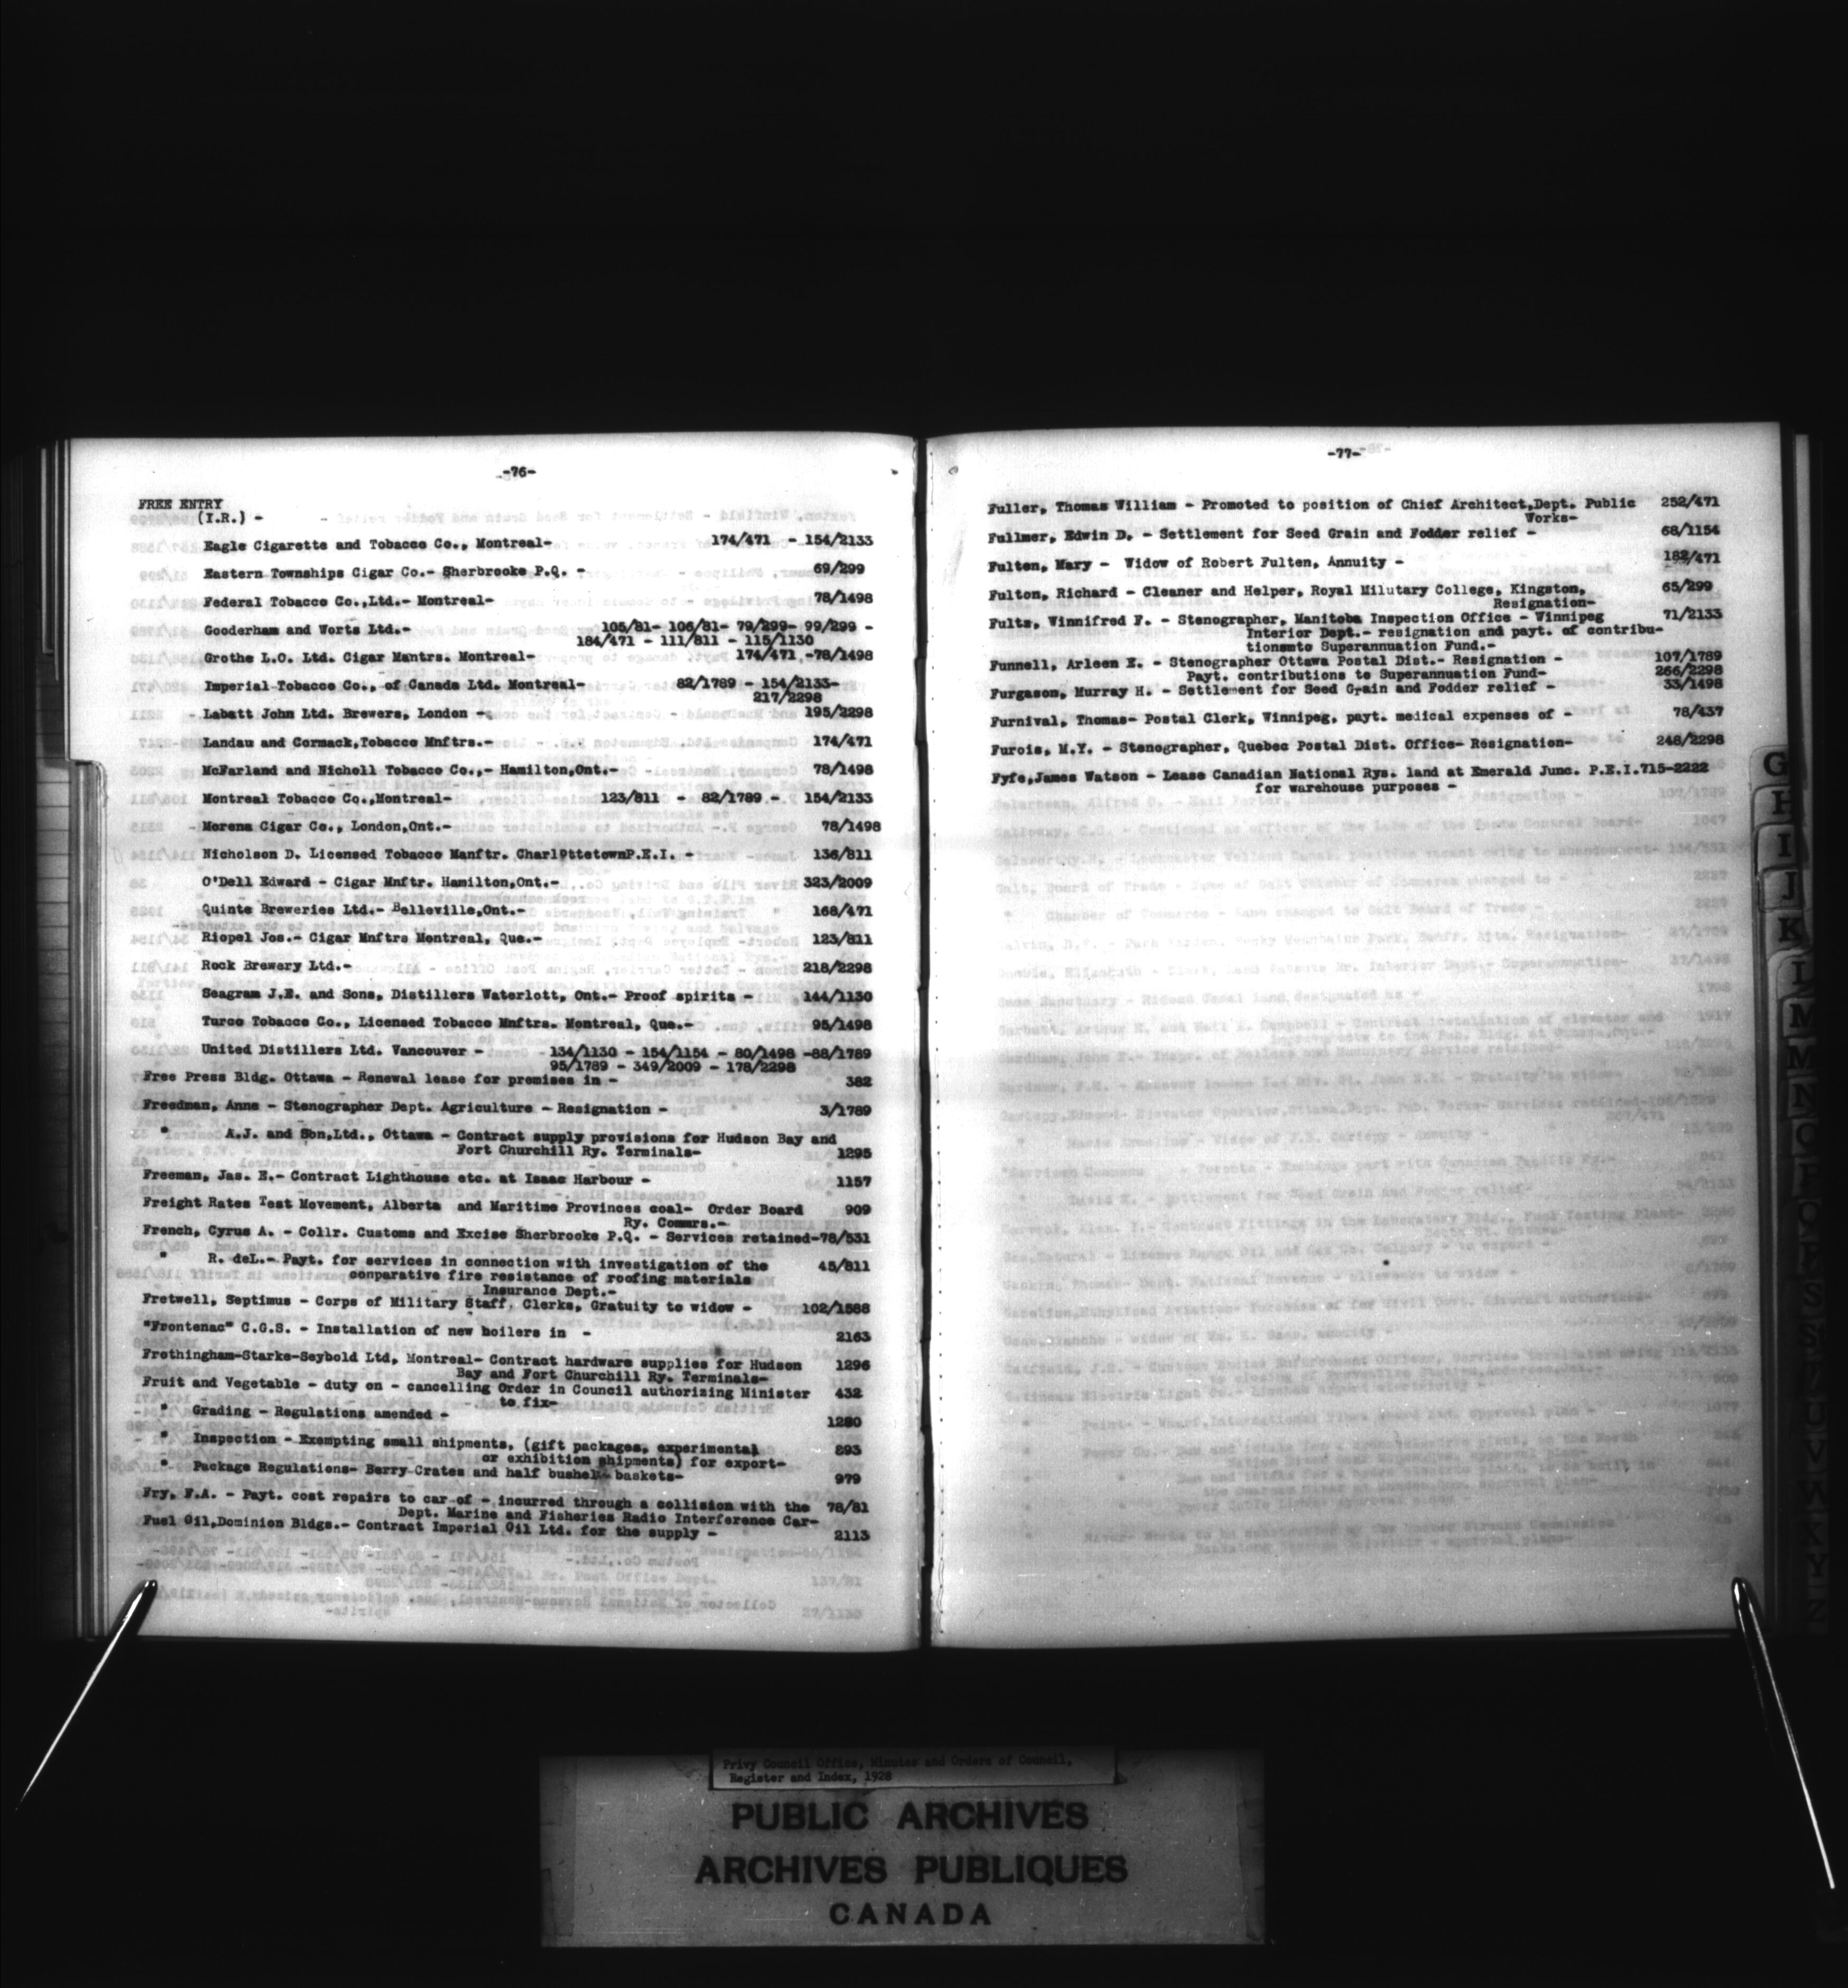 -76-
FREE ENTRY
(I.R.) -
Eagle Cigarette and Tobacco Co., Montreal- 174/471 - 154/2133
Eastern Townships Cigar Co.- Sherbrooke P.Q. - 69/299
Federal Tobacco Co.,Ltd.- Montreal- 78/1498
Gooderham and Worts Ltd.- 105/81- 106/81- 79/299- 99/299 -
184/471 - 111/811 - 115/1130
Grothe L.O. Ltd. Cigar Mantrs. Montreal- 174/471 -78/1498
Imperial Tobacco Co., of Canada Ltd. Montreal- 82/1789 - 154/2133-
217/2298
Labatt John Ltd. Brewers, London - 195/2298
Landau and Cormack,Tobacco Mnftrs.- 174/471
McFarland and Nichell Tobacco Co.,- Hamilton,Ont.- 78/1498
Montreal Tobacco Co.,Montreal- 123/811 - 82/1789 - 154/2133
Morena Cigar Co., London,Ont.- 78/1498
Nicholson D. Licensed Tobacco Manftr. CharlottetownP.E.I. - 136/811
O'Dell Edward - Cigar Mnftr. Hamilton,Ont.- 323/2009
Quinte Breweries Ltd.- Belleville,Ont.- 168/471
Riopel Jos.- Cigar Mnftrs Montreal, Que.- 123/811
Rock Brewery Ltd.- 218/2298
Seagram J.E. and Sons, Distillers Waterlott, Ont.- Proof spirits - 144/1130
Turco Tobacco Co., Licensed Tobacco Mnftrs. Montreal, Que.- 95/1498
United Distillers Ltd. Vancouver - 134/1130 - 154/1154 - 80/1498 -88/1789
95/1789 - 349/2009 - 178/2298
Free Press Bldg. Ottawa - Renewal lease for premises in - 382
Freedman, Anne - Stenographer Dept. Agriculture - Resignation - 3/1789
" A.J. and Son,Ltd., Ottawa - Contract supply provisions for Hudson Bay and
Fort Churchill Ry. Terminals- 1295
Freeman, Jas. E.- Contract Lighthouse etc. at Isaac Harbour - 1157
Freight Rates Test Movement, Alberta and Maritime Provinces coal- Order Board 909
Ry. Commrs.-
French, Cyrus A. - Collr. Customs and Excise Sherbrooke P.Q. - Services retained-78/531
" R. deL.- Payt. for services in connection with investigation of the 45/811
conparative fire resistance of roofing materials
Insurance Dept.-
Fretwell, Septimus - Corps of Military Staff, Clerks, Gratuity to widow - 102/1588
"Frontenac" C.G.S. - Installation of new boilers in - 2163
Frothingham-Starke-Seybold Ltd, Montreal- Contract hardware supplies for Hudson 1296
Bay and Fort Churchill Ry. Terminals-
Fruit and Vegetable - duty on - cancelling Order in Council authorizing Minister 432
to fix-
" Grading - Regulations amended - 1280
" Inspection - Exempting small shipments, (gift packages, experimental 893
or exhibition shipments) for export-
" Package Regulations- Berry Crates and half bushel baskets- 979
Fry, F.A. - Payt. cost repairs to car of - incurred through a collision with the 78/81
Dept. Marine and Fisheries Radio Interference Car-
Fuel Oil,Dominion Bldgs.- Contract Imperial Oil Ltd. for the supply - 2113
-77-
Fuller, Thomas William - Promoted to position of Chief Architect,Dept. Public 252/471
Works-
Fullmer, Edwin D. - Settlement for Seed Grain and Fodder relief - 68/1154
Fulten, Mary - Widow of Robert Fulten, Annuity - 182/471
Fulton, Richard - Cleaner and Helper, Royal Milutary College, Kingston, 65/299
Resignation-
Fults, Winnifred F. - Stenographer, Manitoba Inspection Office - Winnipeg 71/2133
Interior Dept.- resignation and payt. of contribu-
tionsmto Superannuation Fund.-
Funnell, Arleen E. - Stenographer Ottawa Postal Dist.- Resignation - 107/1789
Payt. contributions to Superannuation Fund- 266/2298
Furgason, Murray H. - Settlement for Seed Grain and Fodder relief - 33/1498
Furnival, Thomas- Postal Clerk, Winnipeg, payt. medical expenses of - 78/437
Furois, M.Y. - Stenographer, Quebec Postal Dist. Office- Resignation- 248/2298
Fyfe,James Watson - Lease Canadian National Rys. land at Emerald Junc. P.E.I.715-2222
for warehouse purposes -
G
H
I
J
K
L
M
N
Privy Council Office, Minutes and Orders of Council,
Register and Index, 1928
PUBLIC ARCHIVES
ARCHIVES PUBLIQUES
CANADA